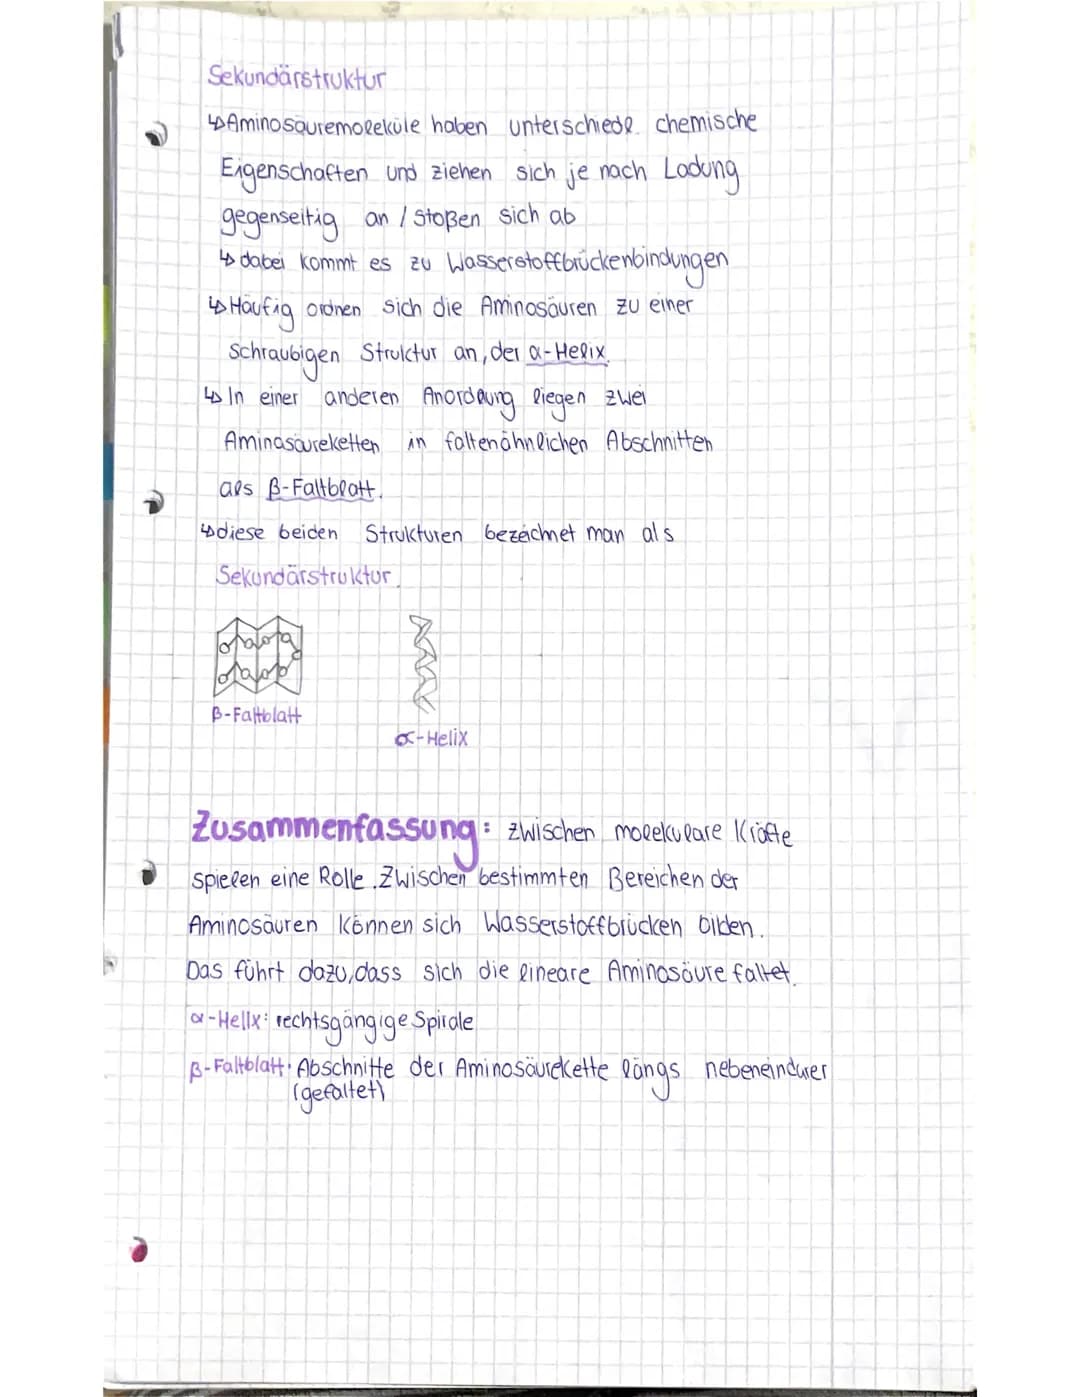 Sekundärstruktur
↳Aminosäuremoleküle haben unterschiedl. chemische
Eigenschaften und ziehen sich je nach Ladung
gegenseitig an / stoßen sich ab
↳ dabei kommt es zu Wasserstoffbrückenbindungen
↳ Häufig ordnen sich die Aminosäuren zu einer
schraubigen Struktur an, der α-Helix.
↳ In einer anderen Anordnung liegen zwei
Aminosäureketten in faltenähnlichen Abschnitten
als β-Faltblatt.
↳diese beiden Strukturen bezeichnet man als
Sekundärstruktur.
β-Faltblatt
α-Helix
Zusammenfassung: zwischen molekulare Kräfte
spielen eine Rolle. Zwischen bestimmten Bereichen der
Aminosäuren können sich Wasserstoffbrücken bilden.
Das führt dazu, dass sich die lineare Aminosäure faltet.
α-Helix: rechtsgängige Spirale
β-Faltblatt: Abschnitte der Aminosäurekette längs nebeneinander
(gefaltet)